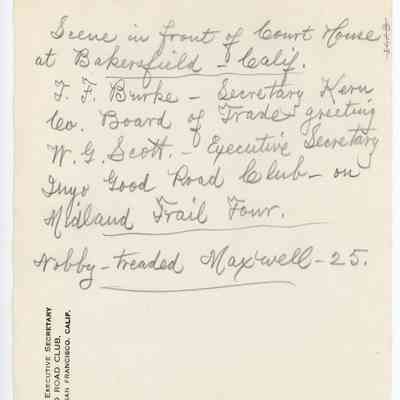 Scene in front of Court House
at Bakersfield - Calif.
T. F. Burke - Secretary Kern
Co. Board of Trade greeting
W. G. Scott. - Executive Secretary
Inyo Good Road Club - on
Midland Trail Tour.
Nobby-treaded Maxwell - 25.
EXECUTIVE SECRETARY
ROAD CLUB,
SAN FRANCISCO, CALIF.